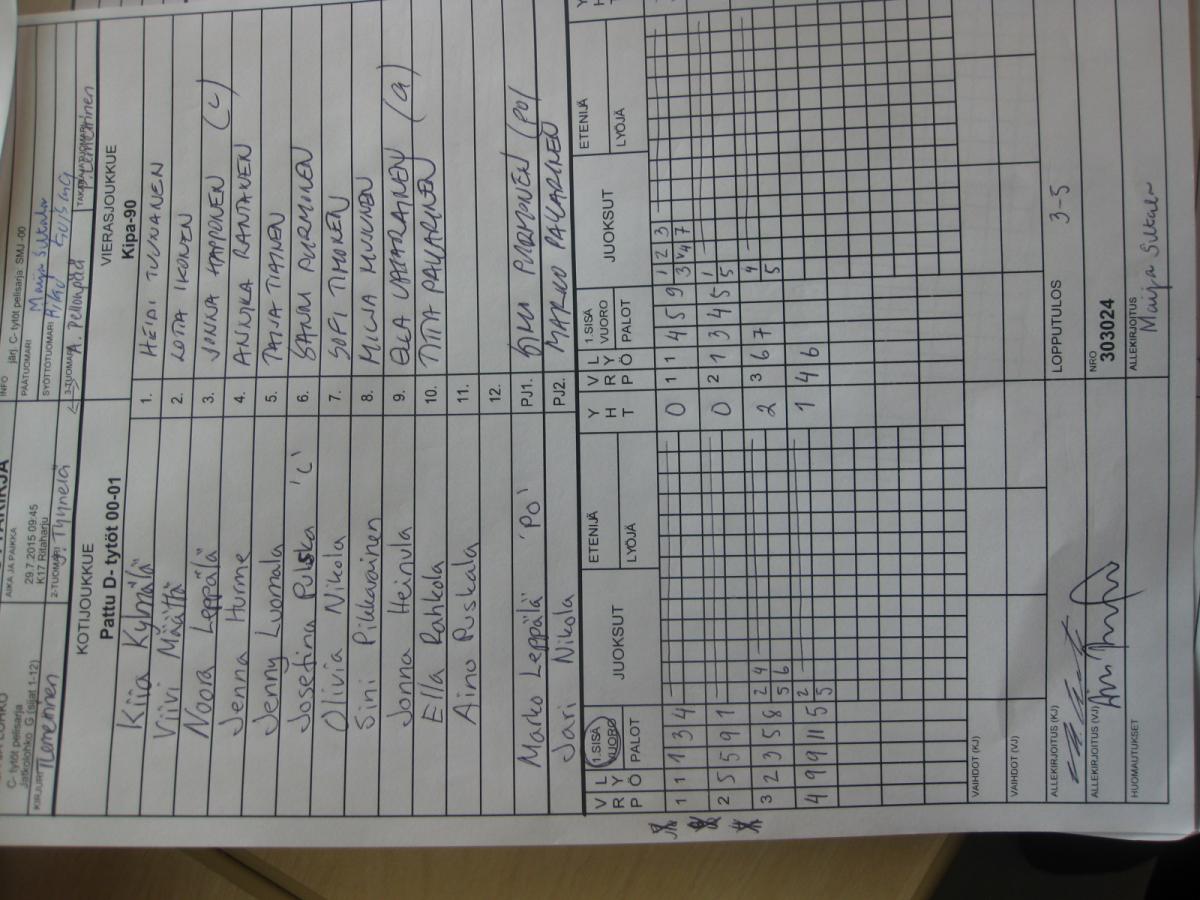 C- tytöt pelisarja
Jatkolohko G (sijat 1-12)
AIKA JA PAIKKA
29.7.2015 09:45
K17 Ritaharju
INFO järj. C- tytöt pelisarja SMJ -00
PÄÄTUOMARI Maija Siltala
SYÖTTÖTUOMARI
KIRJURI
2-TUOMARI Tyynelä
3-TUOMARI A. Pellonpää
TAKARAJATUOMARI
KOTIJOUKKUE
VIERASJOUKKUE
Pattu D- tytöt 00-01
Kipa-90
Kiia Kymälä 1. HEIDI TUUNANEN
Viivi Määttä 2. LOTTA IKONEN
Noora Leppälä 3. JONNA HAPPONEN (C)
Jenna Hurme 4. ANNIKA RANTANEN
Jenny Luomala 5. TAIJA TIAINEN
Josefina Puska 'C' 6. SANNI PURMONEN
Olivia Nikola 7. SOFI TIHONEN
Sini Pikkarainen 8. MILJA MUKKONEN
Jonna Heinula 9. EELA VATARAINEN (a)
Ella Rahkola 10. TIITTA PAKARINEN
Aino Puskala 11.
12.
Marko Leppälä 'PO' PJ1. SIMO PURMONEN (PO)
Jari Nikola PJ2. MARKO PAKARINEN
VRP LYÖ 1.SISÄ VUORO PALOT JUOKSUT ETENIJÄ LYÖJÄ YHT VRP LYÖ 1.SISÄ VUORO PALOT JUOKSUT ETENIJÄ LYÖJÄ
1 1 1 3 4 0 1 1 4 5 9 1 2 3
3 4 7
2 5 5 9 1 0 2 1 3 4 5 1
5
3 2 3 5 8 2 4 2 3 6 7 4
5 6 5
4 9 9 11 5 2 1 4 6
5
VAIHDOT (KJ)
VAIHDOT (VJ)
ALLEKIRJOITUS (KJ)
LOPPUTULOS 3-5
ALLEKIRJOITUS (VJ)
NRO
303024
HUOMAUTUKSET
ALLEKIRJOITUS
Maija Siltala